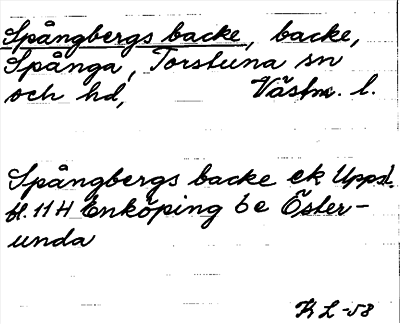 Spångbergs backe, backe,
Spånga, Torstuna sn
och hd, Västm. l.
Spångbergs backe ek Uppsl.
bl. 11 H Enköping 6 e Öster-
unda
K L -58